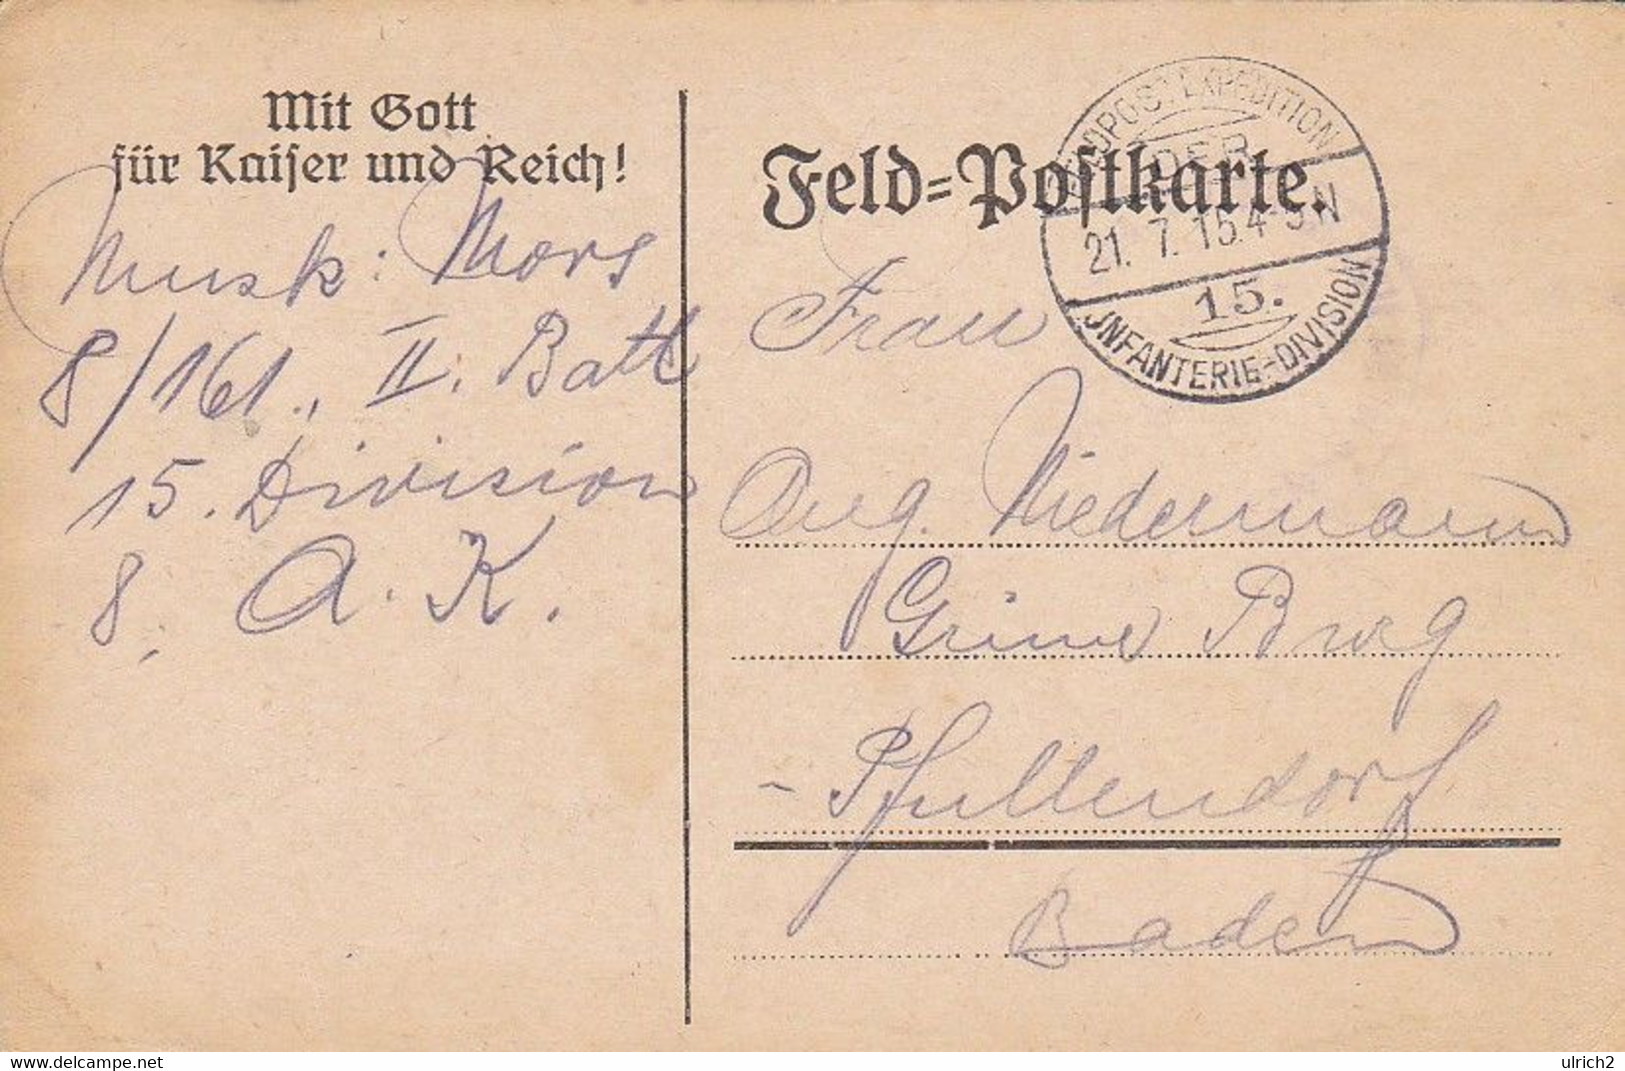 Mit Gott
für Kaiser und Reich!
Musk: Mors
8/161., II. Batl
15. Division
8. A. K.
Feld=Postkarte.
FELDPOST EXPEDITION
DER
21. 7. 15. 4-5 N
15.
JNFANTERIE-DIVISION
Frau
Aug. Niedermann
Grüne Burg
- Pfullendorf
Baden
ulrich2